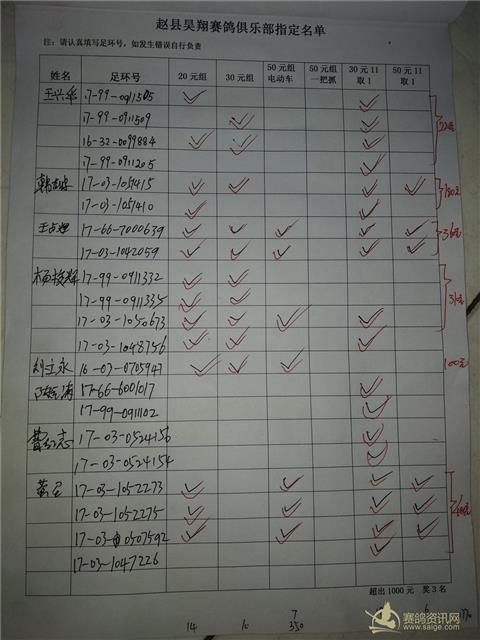 赵县昊翔赛鸽俱乐部指定名单
注：请认真填写足环号，如发生错误自行负责
姓名 足环号 20元组 30元组 50元组电动车 50元组一把抓 30元11取1 50元11取1
王兴华 17-99-0911505
17-99-0911509
16-32-0099884
17-99-0911205
17-03-1051415 180元
17-03-1051410
17-66-7000639 360元
17-03-1042059
17-99-0911332
17-99-0911335
17-03-1050673
17-03-1048756
刘立永 16-03-0705947 100元
17-66-6001017
17-99-0911102
17-03-0524156
17-03-0524154
17-03-1052273
17-03-1052275
17-03-0507592
17-03-1047226
超出1000元 奖3名
7 6
14 10 350
赛鸽资讯网
www.saige.com